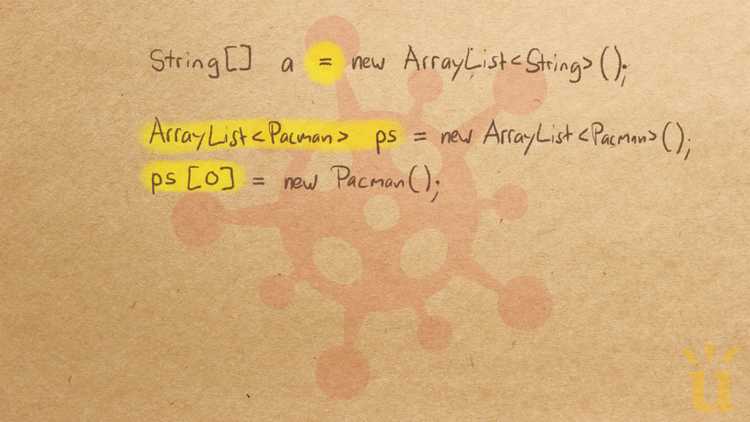 String[] a = new ArrayList<String>();
ArrayList<Pacman> ps = new ArrayList<Pacman>();
ps[0] = new Pacman();
u